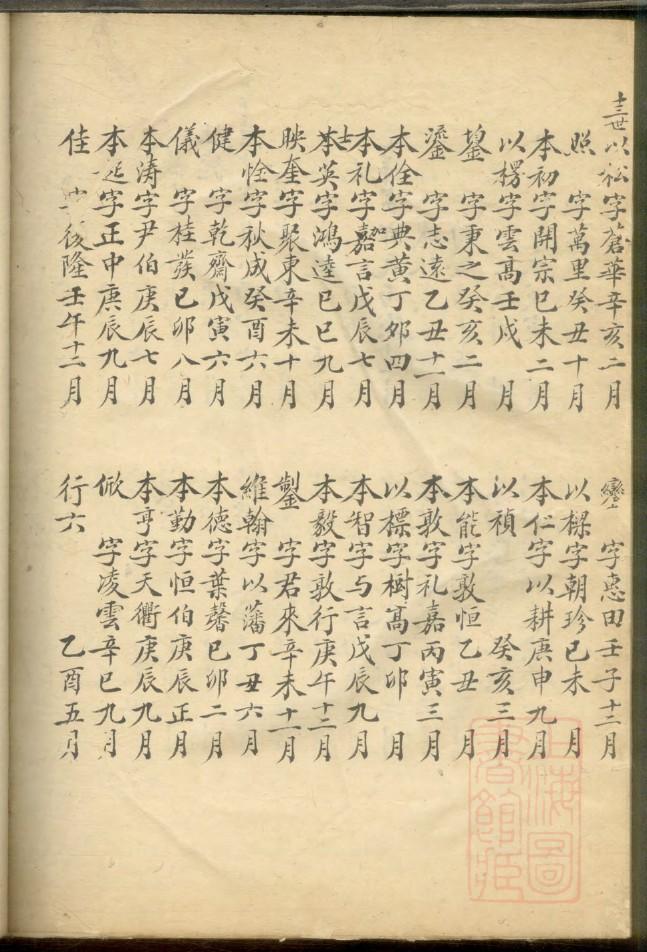 十三世以松字蒼華辛亥二月
照字萬里癸丑十月
本初字開宗己未二月
以楞字雲髙壬戌月
鋆字秉之癸亥二月
鎏字志遠乙丑十一月
本佺字典黄丁卯四月
本礼字嘉言戊辰七月
本英字鴻逵己巳九月
映奎字聚東辛未十月
本恮字秋成癸酉六月
健字乾齋戊寅六月
儀字桂蕟己卯八月
本濤字尹伯庚辰七月
本延字正中庚辰九月
佳字後隆壬午十二月
字惠田壬子十二月
以樑字朝珍己未月
本仁字以耕庚申九月
以禎癸亥三月
本能字敦恒乙丑月
本敦字礼嘉丙寅三月
以標字樹髙丁卯月
本智字与言戊辰九月
本毅字敦行庚午十二月
鏨字君來辛未十一月
維翰字以藩丁丑六月
本德字葉馨己卯二月
本勤字恒伯庚辰正月
本亨字天衢庚辰九月
俽字凌雲辛巳九月
行六乙酉五月
上海圖書館藏